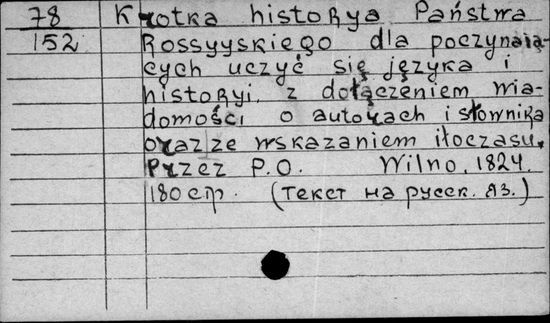 78 Krotka historya Państwa
152 Rossyyskiego dla poczynaią-
cych uczyć się języka i
historyi, z dołączeniem wia-
domości o autorach i słownika
oraz ze wskazaniem iłoczasu.
Przez P.O. Wilno, 1824.
180 стр. (Текст на русск. яз.)